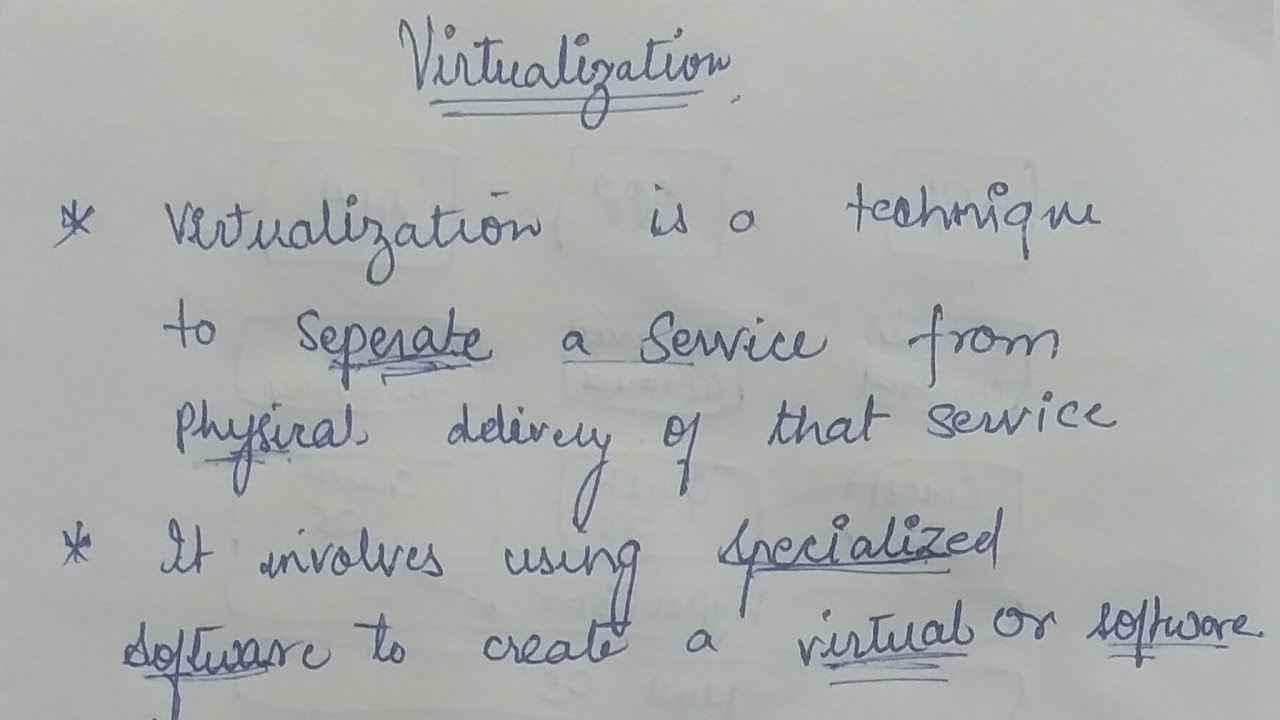 Virtualization.
* Virtualization is a technique
to seperate a service from
physical delivery of that service
* It involves using specialized
software to create a virtual or software